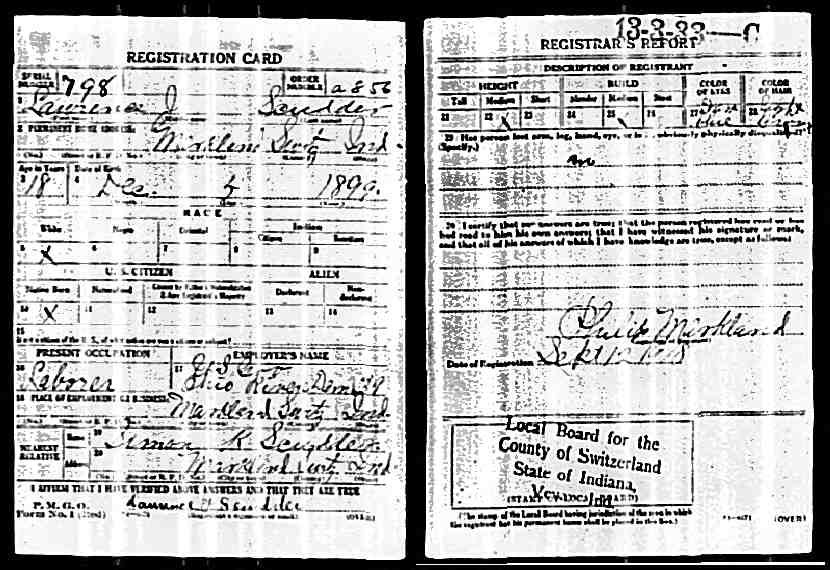 REGISTRATION CARD
SERIAL NUMBER 798 ORDER NUMBER a 856
1 Lawrence J Scudder
2 PERMANENT HOME ADDRESS:
Markland Switz Ind.
Age in Years Date of Birth
3 18 4 Dec. 1899.
RACE
White Negro Oriental Indian
Citizen
5 X 6 7 8 9
U. S. CITIZEN ALIEN
Native Born Naturalized Declarant Non-declarant
10 X 11 12 13 14
15
PRESENT OCCUPATION EMPLOYER'S NAME
16 Laborer 17 U.S. Gov
Ohio River Dam 39
18 PLACE OF EMPLOYMENT OR BUSINESS
Markland Switz Ind
NEAREST RELATIVE Name 19 Simon R Scudder
Address 20 Markland Switz Ind.
I AFFIRM THAT I HAVE VERIFIED ABOVE ANSWERS AND THAT THEY ARE TRUE
P. M. G. O.
Form No. 1 (Red) Laurence J Scudder (OVER)
13-3-33—C
REGISTRAR'S REPORT
DESCRIPTION OF REGISTRANT
HEIGHT BUILD COLOR OF EYES COLOR OF HAIR
Tall Medium Short Slender Medium Stout
21 22 X 23 24 25 26 27 28
29 Has person lost arm, leg, hand, eye, or is he obviously physically disqualified?
(Specify.)
no
30 I certify that my answers are true; that the person registered has read or has
had read to him his own answers; that I have witnessed his signature or mark,
and that all of his answers of which I have knowledge are true, except as follows:
Markland
Date of Registration Sept 12 1918
Local Board for the
County of Switzerland
State of Indiana,
Ind.
(STAMP OF LOCAL BOARD)
(The stamp of the Local Board having jurisdiction of the area in which
the registrant has his permanent home shall be placed in this box.)
(OVER)